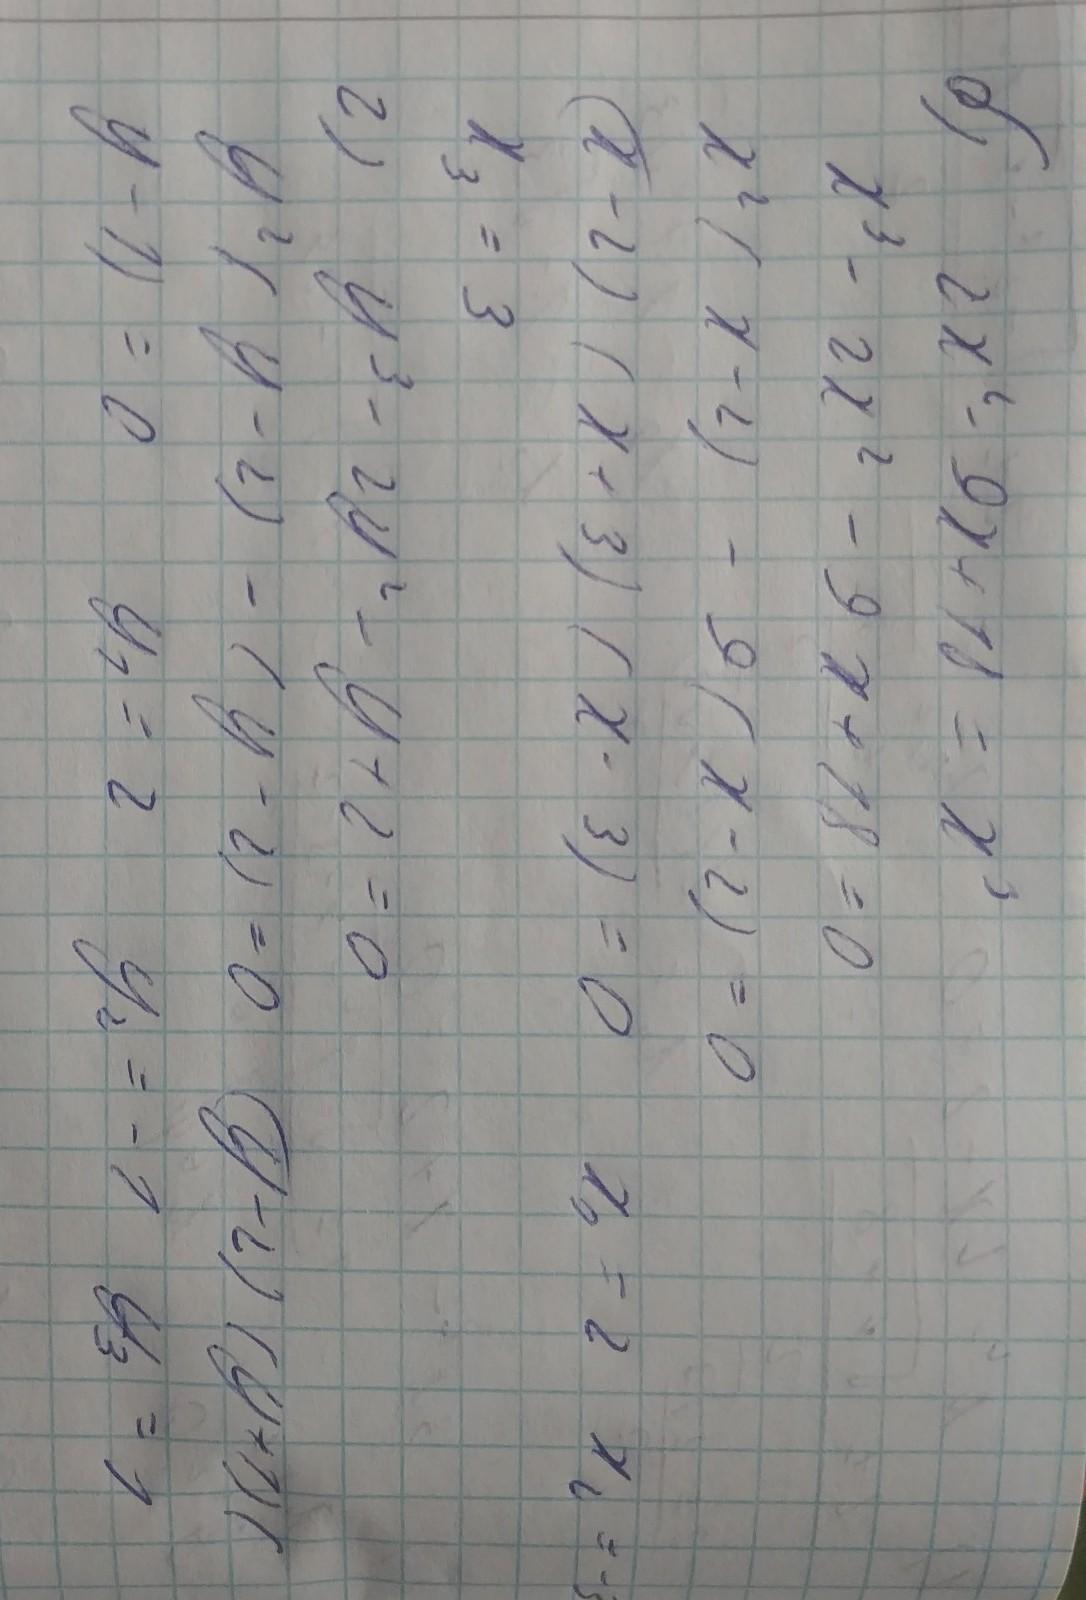 б) 2x² - 9x + 18 = x³
x³ - 2x² - 9x + 18 = 0
x² ( x - 2) - 9 ( x - 2) = 0
(x - 2) ( x + 3) ( x - 3) = 0 x₁ = 2 x₂ = -3
x₃ = 3
г) y³ - 2y² - y + 2 = 0
y² ( y - 2) - ( y - 2) = 0 (y - 2) ( y + 1) (
y - 1) = 0 y₁ = 2 y₂ = -1 y₃ = 1